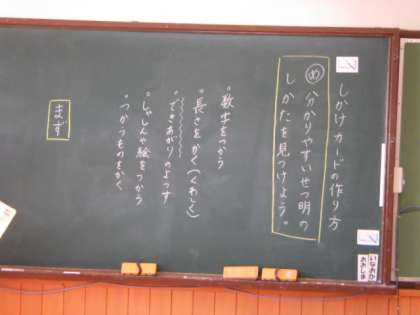 しかけカードの作り方
め 分かりやすいせつ明の
しかたを見つけよう。
"数字をつかう
"長さをかく(くわしく)
"できあがりのようす
"しゃしんや絵をつかう
"つかうものをかく
まず
いなおか
おおしま